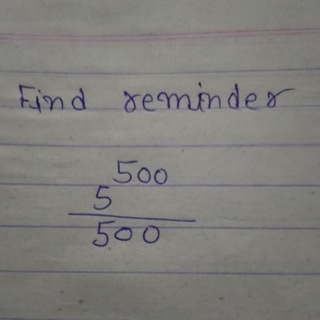 Find reminder
5^500
500